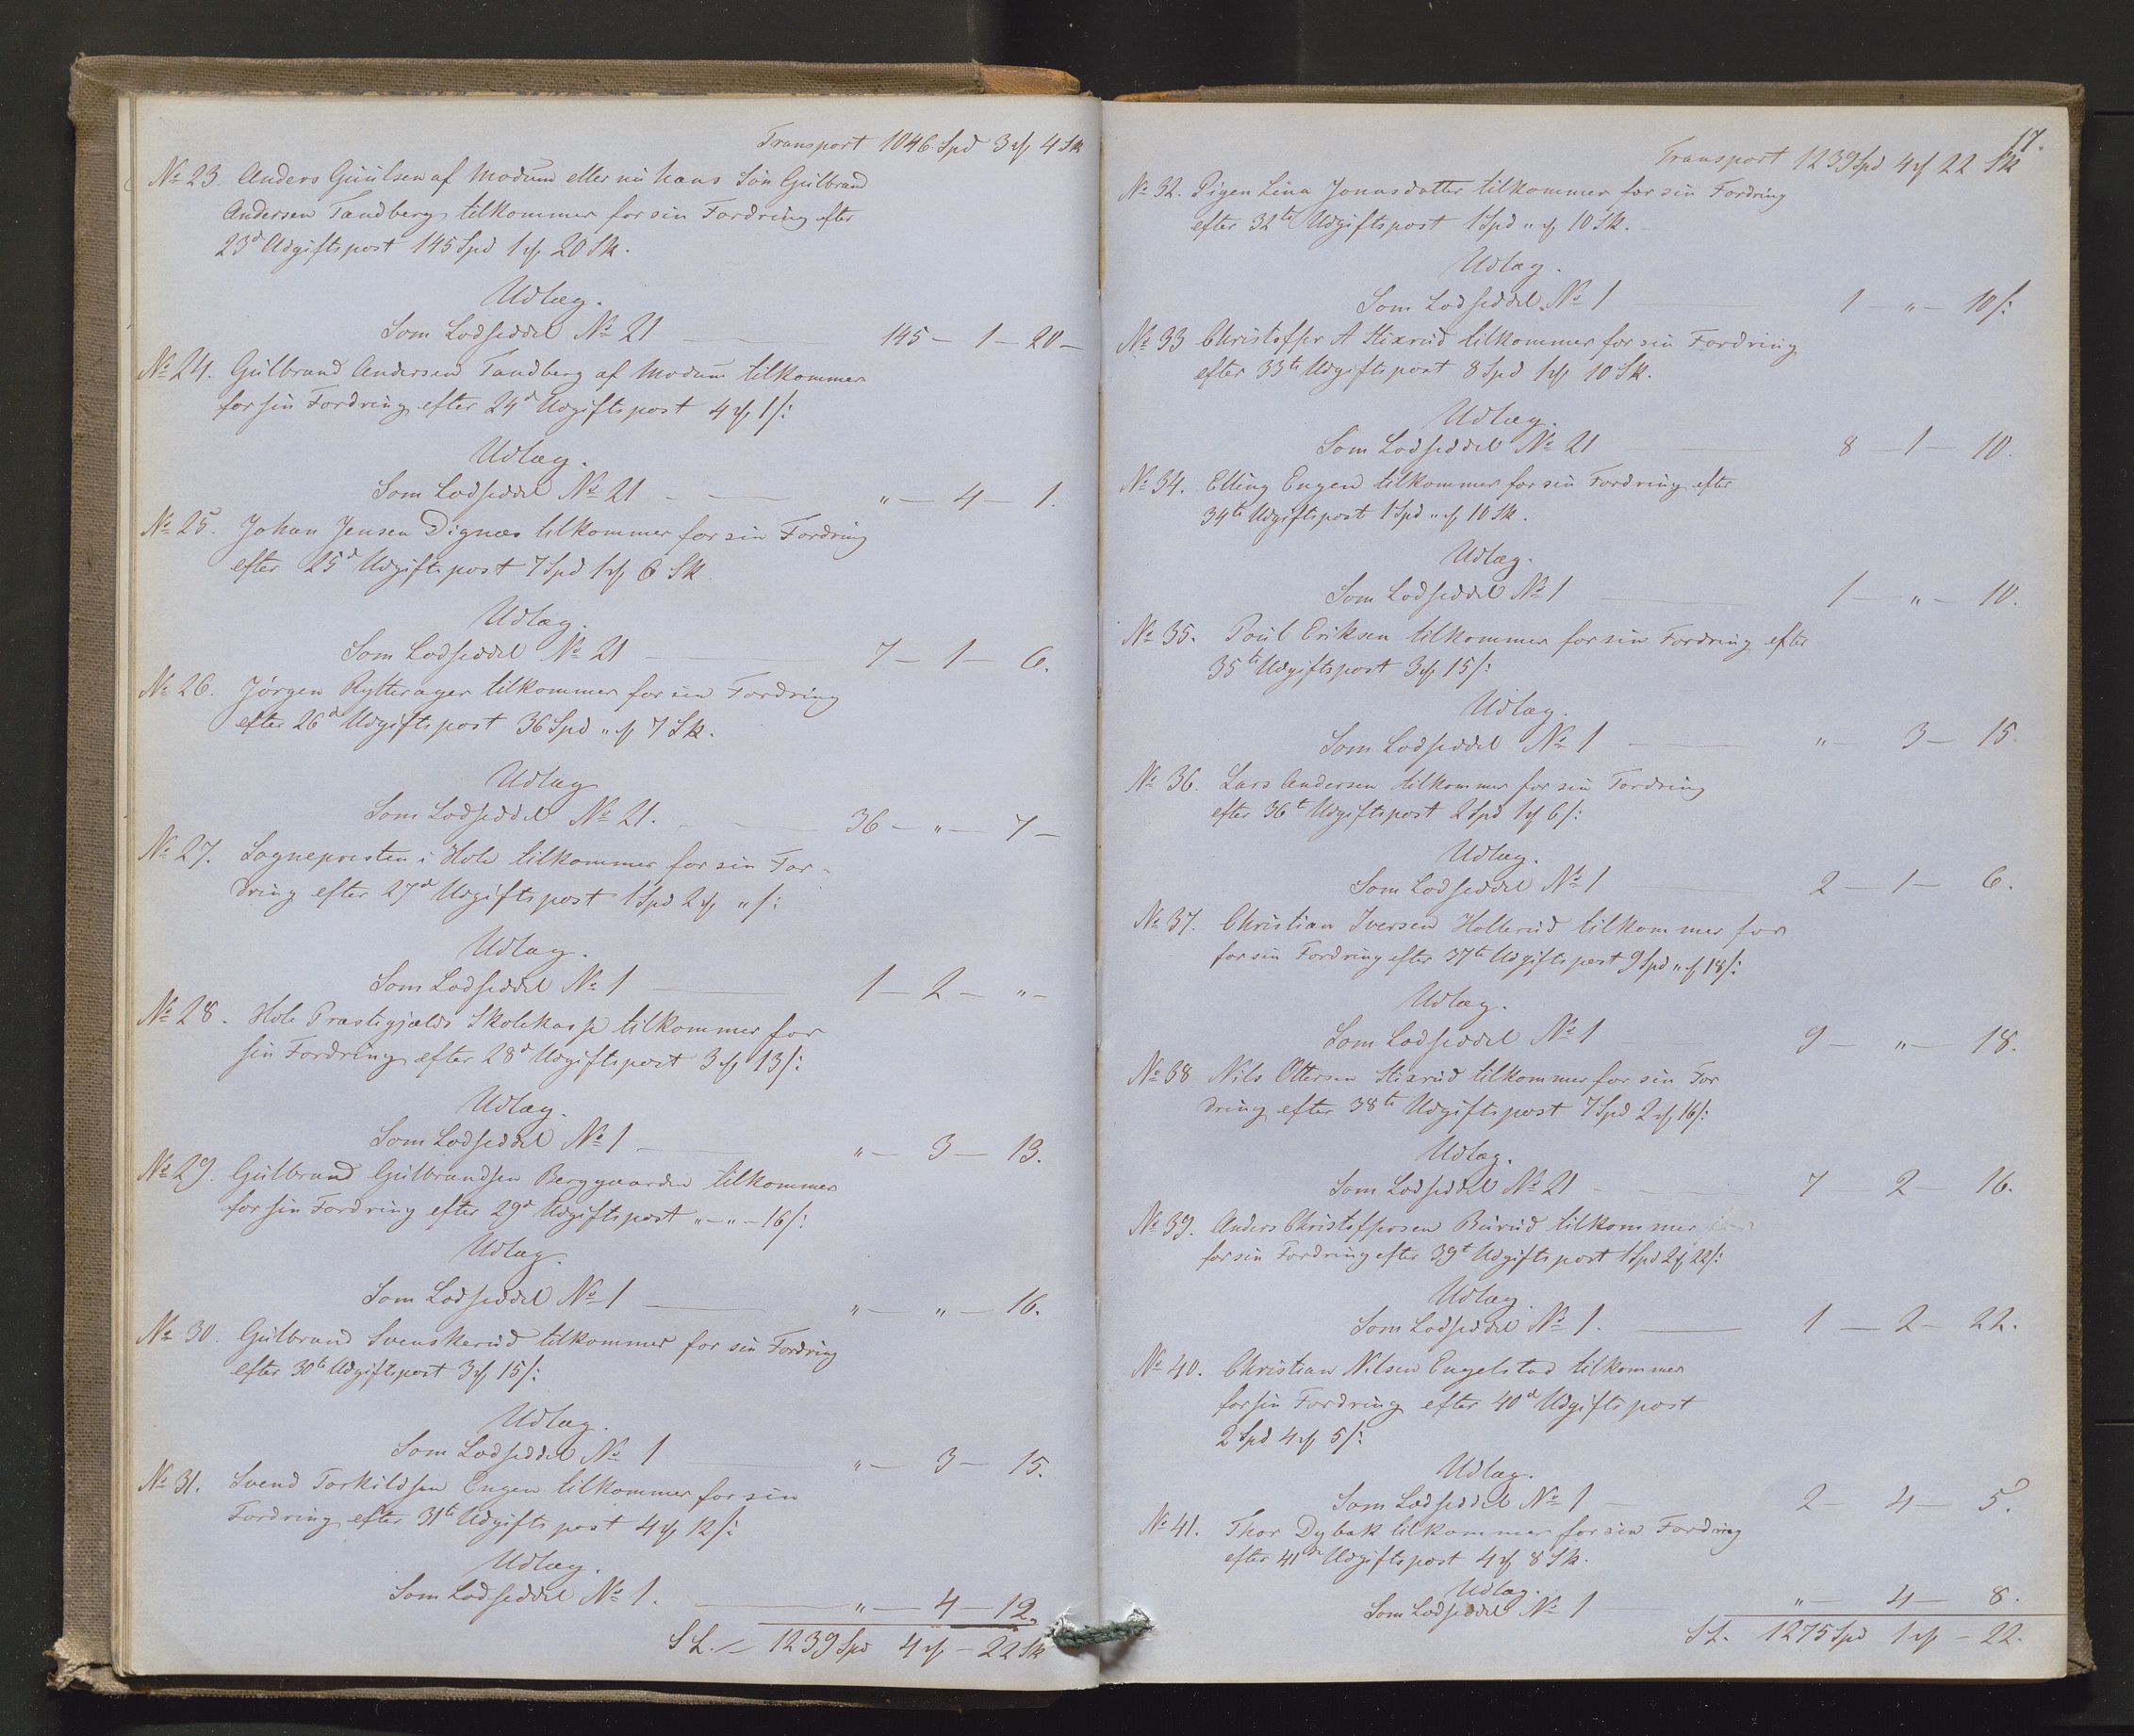 Transport 1046 Spd 3 ₰ 4 Sk
No 23. Anders Guulsen af Modum eller nu hans Søn Gulbrand
Andersen Tandberg tilkommer for sin Fordring efter
23d Udgiftspost 145 Spd 1 ₰ 20 Sk.
Udlæg.
Som Lodseddel No 21 — 145 — 1 — 20 —
No 24. Gulbrand Andersen Tandberg af Modum tilkommer
for sin Fordring efter 24d Udgiftspost 4 ₰ 1 s:
Udlæg.
Som Lodseddel No 21 — " — 4 — 1.
No 25. Johan Jensen Dignæs tilkommer for sin Fordring
efter 25d Udgiftspost 7 Spd 1 ₰ 6 Sk
Udlæg.
Som Lodseddel No 21 — 7 — 1 — 6.
No 26. Jørgen Rytterager tilkommer for sin Fordring
efter 26d Udgiftspost 36 Spd " ₰ 7 Sk.
Udlæg
Som Lodseddel No 21. — 36 — " — 7 —
No 27. Sognepresten i Hole tilkommer for sin For-
dring efter 27d Udgiftspost 1 Spd 2 ₰ " s:
Udlæg.
Som Lodseddel No 1 — 1 — 2 — " —
No 28. Hole Præstegjælds Skolekasse tilkommer for
sin Fordring efter 28d Udgiftspost 3 ₰ 13 s:
Udlæg.
Som Lodseddel No 1 — " — 3 — 13.
No 29. Gulbrand Gulbrandsen Berggaarden tilkommer
for sin Fordring efter 29d Udgiftspost " — " — 16 s:
Udlæg.
Som Lodseddel No 1 — " — " — 16.
No 30. Gulbrand Svenskerud tilkommer for sin Fordring
efter 30te Udgiftspost 3 ₰ 15 s:
Udlæg.
Som Lodseddel No 1 — " — 3 — 15.
No 31. Svend Torkildsen Engen tilkommer for sin
Fordring efter 31te Udgiftspost 4 ₰ 12 s:
Udlæg.
Som Lodseddel No 1. — " — 4 — 12.
S L. — 1239 Spd 4 ₰ — 22 Sk
17.
Transport 1239 Spd 4 ₰ 22 Sk
No 32. Pigen Lina Jonnsdatter tilkommer for sin Fordring
efter 32te Udgiftspost 1 Spd " ₰ 10 Sk.
Udlæg.
Som Lodseddel No 1 — 1 — " — 10 s:
No 33 Christoffer A Stixrud tilkommer for sin Fordring
efter 33te Udgiftspost 8 Spd 1 ₰ 10 Sk.
Udlæg.
Som Lodseddel No 21 — 8 — 1 — 10.
No 34. Elling Engen tilkommer for sin Fordring efter
34te Udgiftspost 1 Spd " ₰ 10 Sk.
Udlæg.
Som Lodseddel No 1 — 1 — " — 10.
No 35. Poul Eriksen tilkommer for sin Fordring efter
35te Udgiftspost 3 ₰ 15 s:
Udlæg.
Som Lodseddel No 1 — " — 3 — 15.
No 36. Lars Andersen tilkommer for sin Fordring
efter 36t Udgiftspost 2 Spd 1 ₰ 6 s:
Udlæg.
Som Lodseddel No 1 2 — 1 — 6.
No 37. Christian Iversen Hollerud tilkommer for
for sin Fordring efter 37te Udgiftspost 9 Spd " ₰ 18 s:
Udlæg.
Som Lodseddel No 1 9 — " — 18.
No 38 Nils Ottersen Stixrud tilkommer for sin For
dring efter 38te Udgiftspost 7 Spd 2 ₰ 16 s:
Udlæg.
Som Lodseddel No 21 — 7 2 — 16.
No 39. Anders Christoffersen Burud tilkommer
for sin Fordring efter 39t Udgiftspost 1 Spd 2 ₰ 22 s:
Udlæg.
Som Lodseddel No 1. — 1 — 2 — 22.
No 40. Christian Nilsen Engelstad tilkommer
for sin Fordring efter 40d Udgiftspost
2 Spd 4 ₰ 5 s:
Udlæg.
Som Lodseddel No 1 — 2 — 4 — 5.
No 41. Thor Dybak tilkommer for sin Fordring
efter 41de Udgiftspost 4 ₰ 8 Sk.
Udlæg.
Som Lodseddel No 1 " — 4 — 8.
S L. 1275 Spd 1 ₰ — 22.